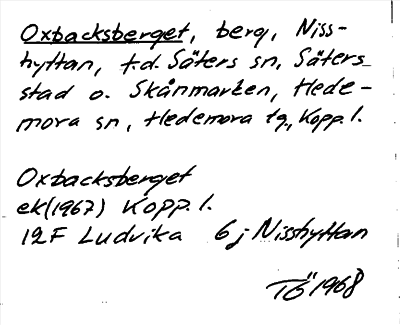 Oxbacksberget, berg, Niss-
hyttan, t.d. Säters sn, Säters
stad o. Skånmarken, Hede-
mora sn, Hedemora tg, Kopp. l.
Oxbacksberget
ek(1967) Kopp. l.
12F Ludvika 6j Nisshyttan
TÖ 1968